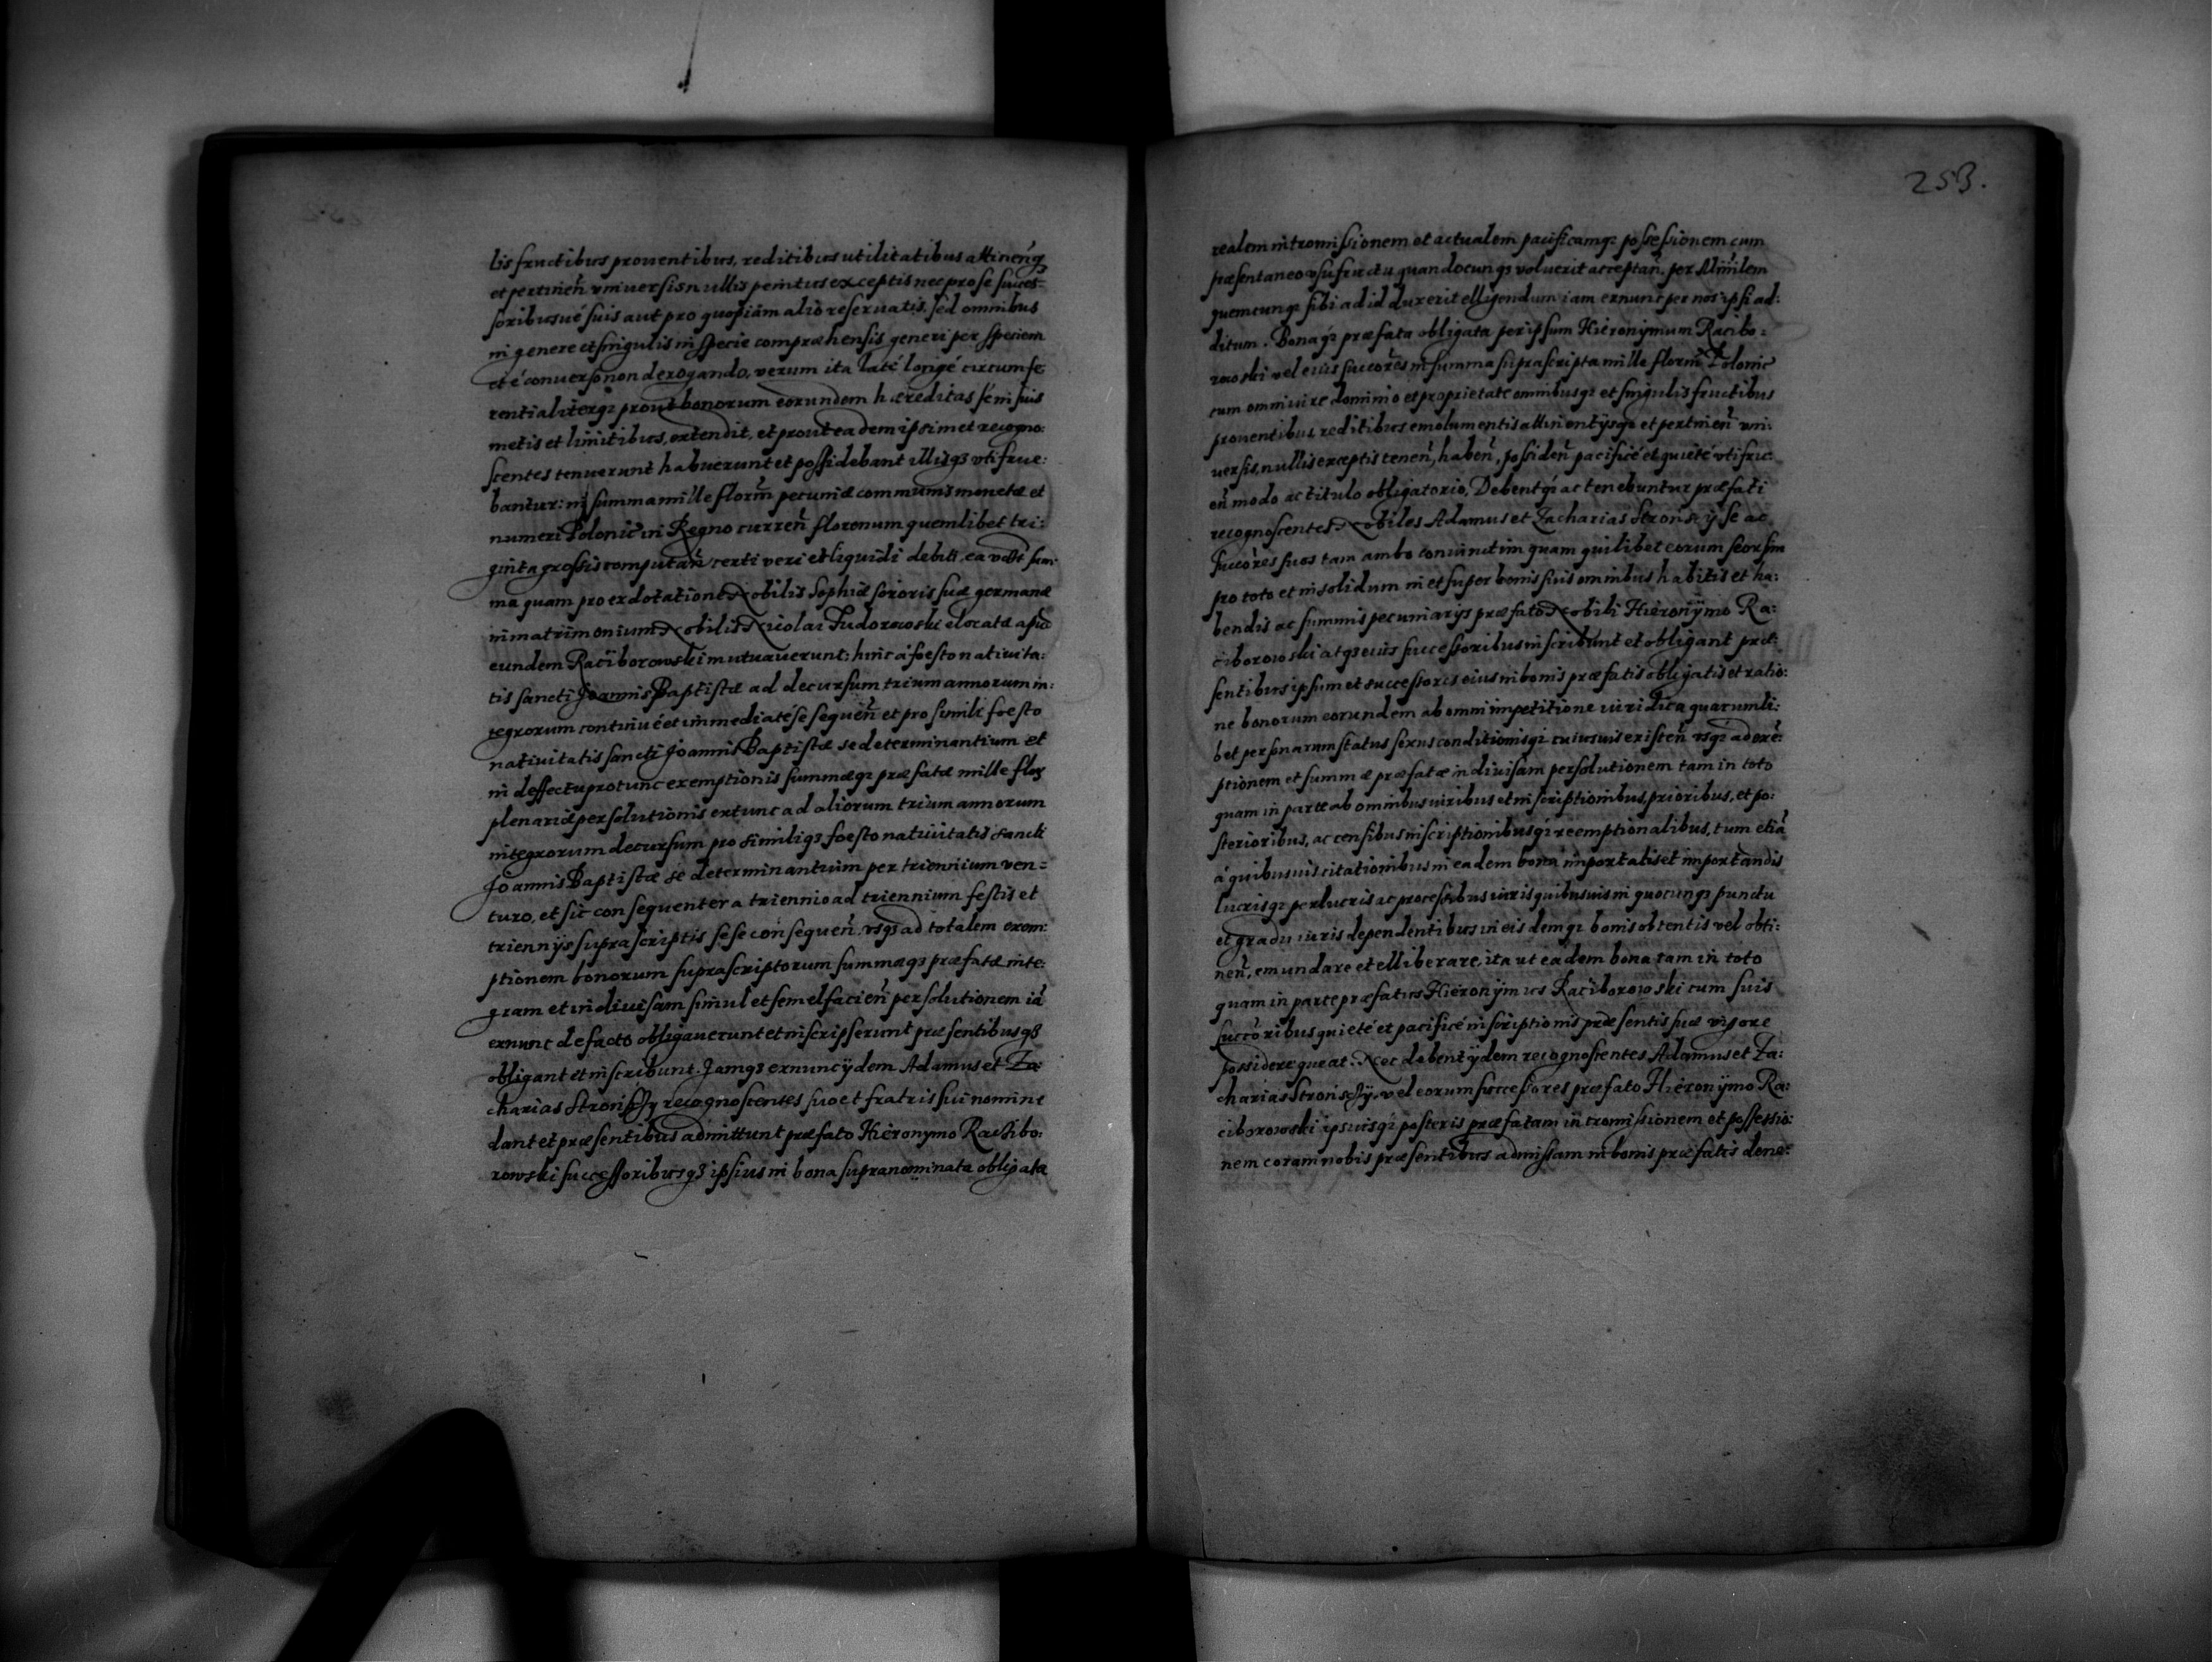 lis fructibus prouentibus, reditibus utilitatibus attinengz
et pertineñ vniuersis nullis penitus exceptis nec pro se succes=
soribusue suis aut pro quopiam alio reseruatis, sed omnibus
in genere et singulis in specie compræhensis generi per speciem
et é conuerso non derogando, verum ita laté longé circumfe
rentialiterqz prout bonorum eorundem hæreditas se in suis
metis et limitibus, extendit, et prout eadem ipsimet recogno:
scentes tenuerunt habuerunt et possidebant illisqz vtifrue:
bantur: in summa mille florm̃ pecuniæ communis monetæ et
numeri Polonic̃ in Regno curreñ florenum quemlibet tri:
ginta grossis computañ certi veri et liquidi debiti, ea vd̃lt sum:
ma quam pro exdotatione Nobilis Sophiæ sororis suæ germanæ
in matrimonium Nobilis Nicolai Fudorowski elocatæ apud
eundem Raciborowski mutuauerunt: hinc á foesto natiuita:
tis sancti Joannis Baptistæ ad decursum trium annorum in:
tegrorum continué et immediaté se sequeñ et pro simili foesto
natiuitatis sancti Joannis Baptistæ se determinantium et
in deffectu protunc exemptionis summæqz præfatæ mille flor
plenariæ persolutionis extunc ad aliorum trium annorum
integrorum decursum pro similiqz foesto natiuitatis sancti
Joannis Baptistæ se determinantium per triennium ven=
turo, et sic consequenter a triennio ad triennium festis et
triennÿs suprascriptis sese consequeñ. vsqz ad totalem exem:
ptionem bonorum suprascriptorum summæqz præfatæ inte:
gram et indiuisam simul et semel facieñ persolutionem iã
exnunc de facto obligauerunt et inscripserunt præsentibusqz
obligant et inscribunt. Jamqz exnunc ÿdem Adamus et Za:
charias Stronscÿ recognoscentes suo et fratris sui nomine
dant et præsentibus admittunt præfato Hieronymo Racibo:
rowski successoribusqz ipsius in bona supranominata obligata
253.
realem intromissionem et actualem pacificamqz possessionem cum
præsentaneo vsufructu quandocunqz voluerit acceptañ. per Ministerialem
quemcunqz sibi ad id duxerit elligendum iam exnunc per nos ipsi ad:
ditum. Bonaqz præfata obligata per ipsum Hieronymum Racibo:
rowski vel eius succores in summa suprascripta mille florm̃ Polonic̃
cum omni iure dominio et proprietate omnibusqz et singulis fructibus
prouentibus, reditibus emolumentis attinentÿsqz et pertineñ vni:
uersis, nullis exceptis teneñ, habeñ, possideñ pacificé et quieté vtifru
eñ modo ac titulo obligatorio, Debentqz ac tenebuntur præfati
recognoscentes Nobiles Adamus et Zacharias Stronscÿ se ac
succores suos tam ambo coniunctim quam quilibet eorum seorsim
pro toto et insolidum in et super bonis suis omnibus habitis et ha:
bendis ac summis pecuniarÿs præfato Nobili Hieronÿmo Ra:
ciborowski atqz eius successoribus inscribunt et obligant præ:
sentibus ipsum et successores eius in bonis præfatis obligatis et ratio:
ne bonorum eorundem ab omni impetitione iuridica quarumli:
bet personarum status sexus conditionisqz cuiusuis existeñ vsqz ad exẽ:
ptionem et summæ præfatæ indiuisam persolutionem tam in toto
quam in parte ab omnibus iuribus et inscriptionibus, prioribus, et po:
sterioribus, ac censibus inscriptionibusqz reemptionalibus, tum etiã
á quibusuis citationibus in eadem bona importatis et importandis
lucrisqz perlucris ac processibus iuris quibusuis in quocunqz punctu
et gradu iuris dependentibus in eisdemqz bonis obtentis vel obti:
neñ, emundare et elliberare, ita ut eadem bona tam in toto
quam in parte præfatus Hieronÿmus Raciborowski cum suis
succoribus quieté et pacificé inscriptionis præsentis suæ vigore
possidere queat. Nec debent ÿdem recognoscentes Adamus et Za:
charias Stronscÿ, vel eorum successores præfato Hieronÿmo Ra:
ciborowski ipsiusqz posteris præfatam intromissionem et possessio:
nem coram nobis præsentibus admissam in bonis præfatis dene: